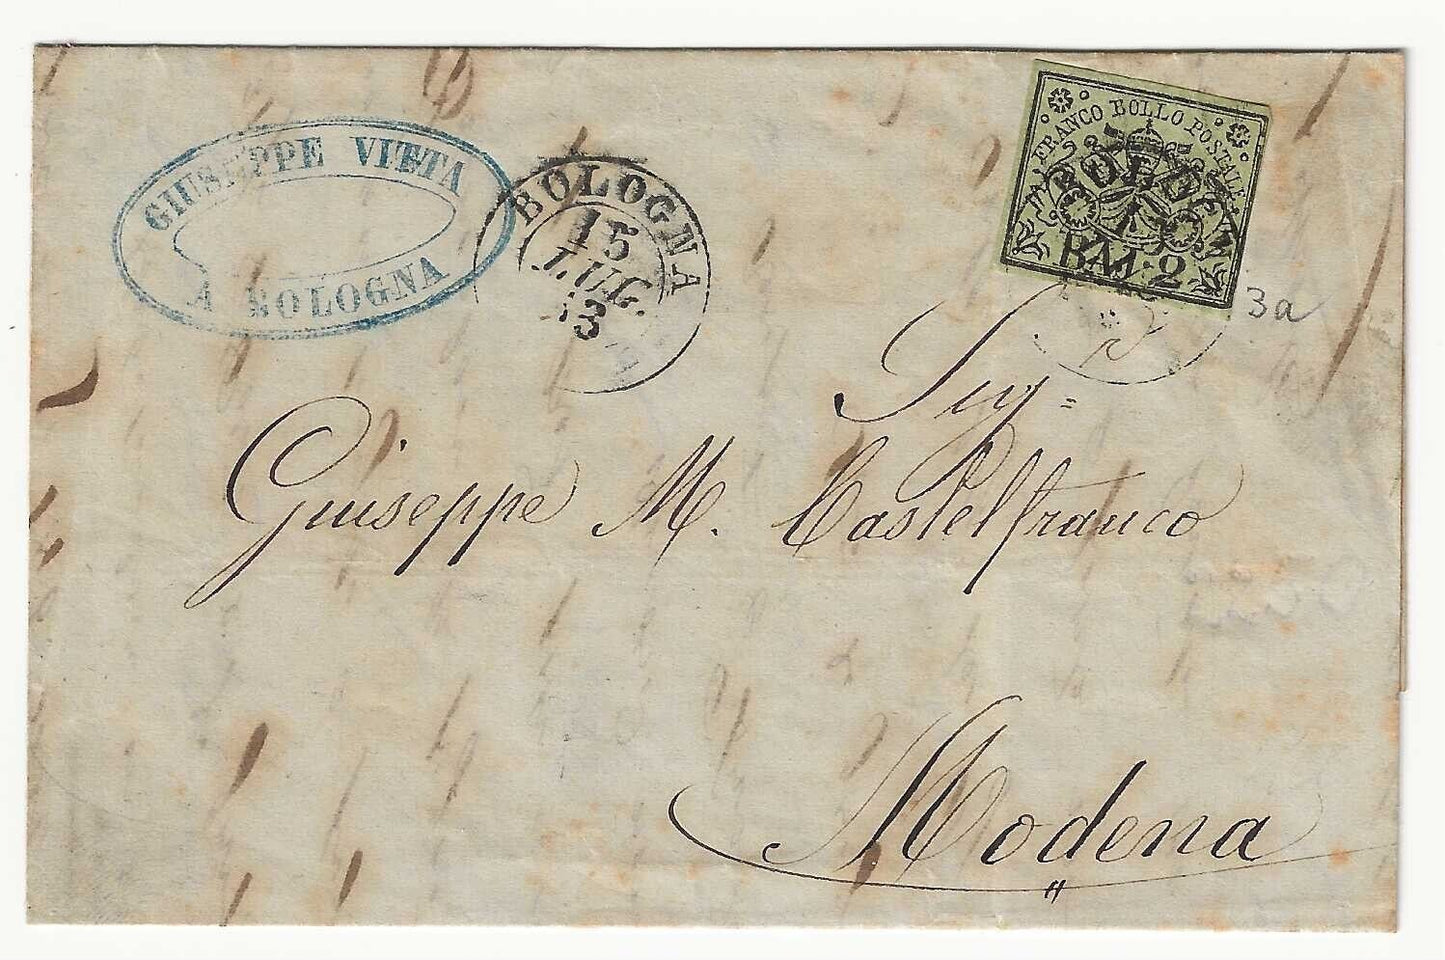 GIUSEPPE VITTA
A BOLOGNA
BOLOGNA
15
LUG.
FRANCO BOLLO POSTALE
BAJ. 2
3a
Sig=
Guiseppe M. Castelfranco
Modena